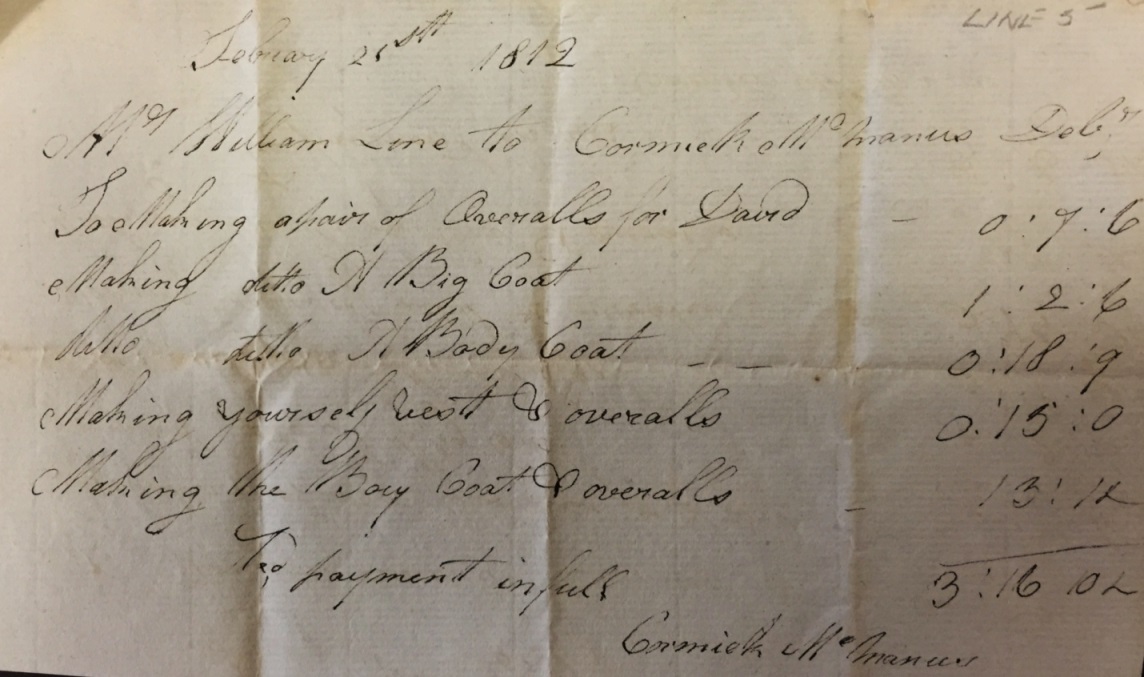 LINE 5
Febuary 25th 1812
Mr William Line to Cormick McManus Debr
To Making a pair of Overalls for David - 0:7:6
Making ditto A Big Coat 1:2:6
ditto ditto A Body Coat - - 0:18:9
Making yourself vest & overalls 0:15:0
Making the Boy Coat & overalls - 13:1½
Recd payment in full 3:16 10½
Cormick McManus